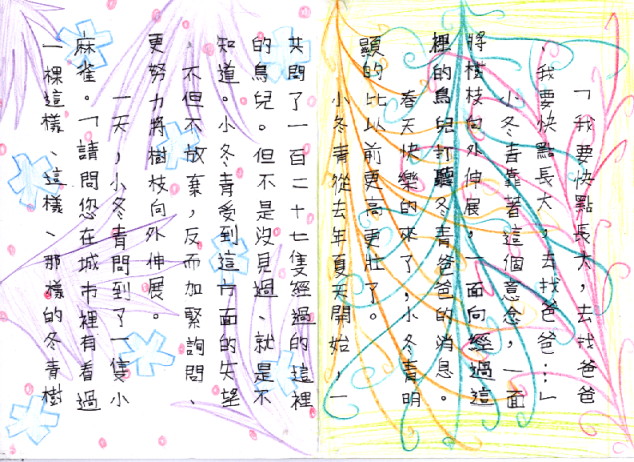 「我要快點長大，去找爸爸
，我要快點長大，去找爸爸…」
小冬青靠著這個意念，一面
將樹枝向外伸展，一面向經過這
裡的鳥兒打聽冬青爸爸的消息。
春天快樂的來了，小冬青明
顯的比以前更高更壯了。
小冬青從去年夏天開始，一
共問了一百二十七隻經過的這裡
的鳥兒。但不是沒見過、就是不
知道。小冬青受到這方面的失望
，不但不放棄，反而加緊詢問、
更努力將樹枝向外伸展。
一天，小冬青問到了一隻小
麻雀。「請問您在城市裡有看過
一棵這樣、這樣、那樣的冬青樹